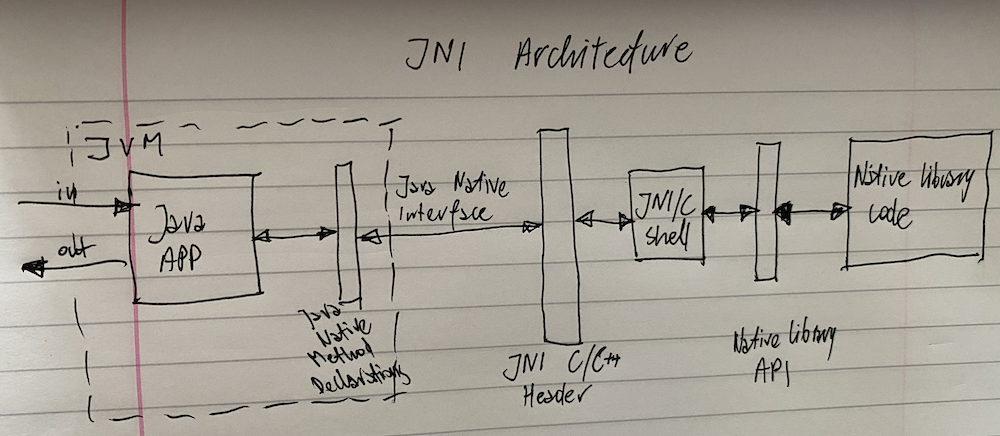 JNI Architecture
JVM
in
out
Java
APP
Java
Native
Method
Declarations
Java Native
Interface
JNI C/C++
Header
JNI/C
shell
Native library
API
Native library
code